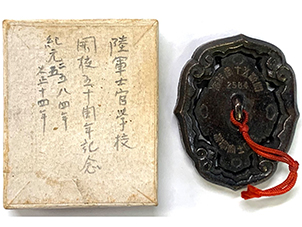 陸軍士官学校
開校五十周年記念
紀元二五八四年
大正十四年
2584